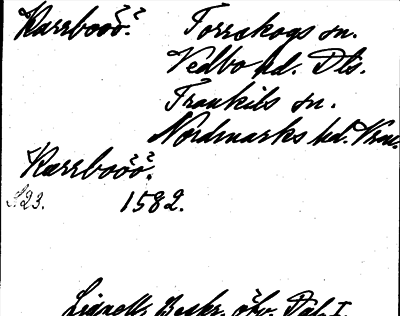 Karrbooᵒ̌ᵒ̌. Torrskogs sn.
Vedbo hd. Dls.
Trankils sn.
Nordmarks hd. Vrm.
Karrbooᵒ̌ᵒ̌.
S. 23. 1582.
Lignell, Beskr. öfv. Dal I.